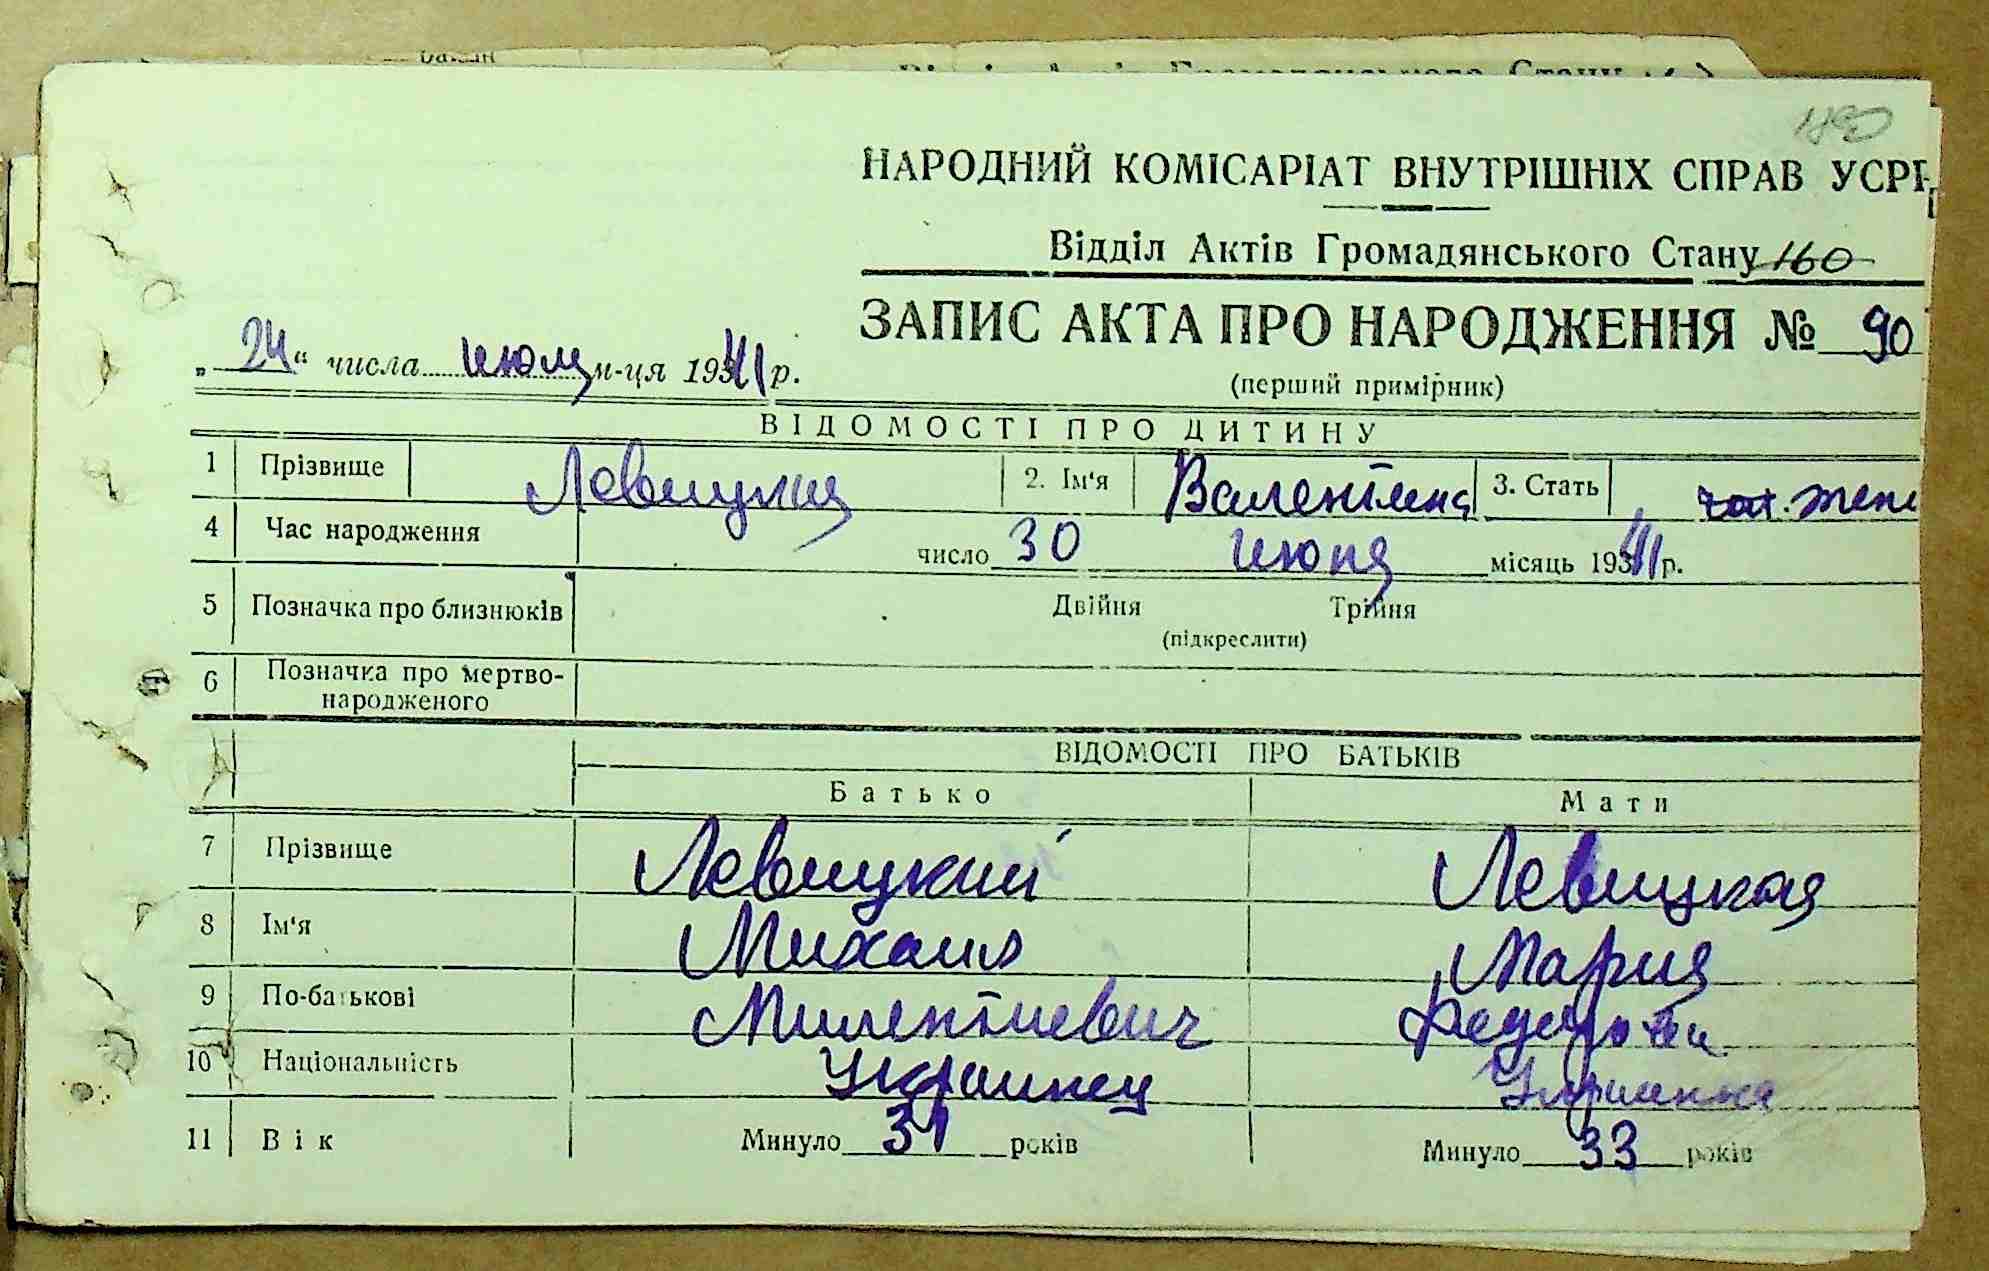 190
НАРОДНИЙ КОМІСАРІАТ ВНУТРІШНІХ СПРАВ УСРР
Відділ Актів Громадянського Стану 160
ЗАПИС АКТА ПРО НАРОДЖЕННЯ № 90
„24“ числа июля м-ця 1941 р.
(перший примірник)
ВІДОМОСТІ ПРО ДИТИНУ
1 Прізвище Левицкия 2. Ім‘я Валентина 3. Стать чол. жен
4 Час народження число 30 июня місяць 1941 р.
5 Позначка про близнюків Двійня Трійня
(підкреслити)
6 Позначка про мертво-
народженого
ВІДОМОСТІ ПРО БАТЬКІВ
Батько Мати
7 Прізвище Левицкий Левицкая
8 Ім‘я Михаил Мария
9 По-батькові Милентиевич
10 Національність Украинец Украинка
11 Вік Минуло 31 років Минуло 33 років